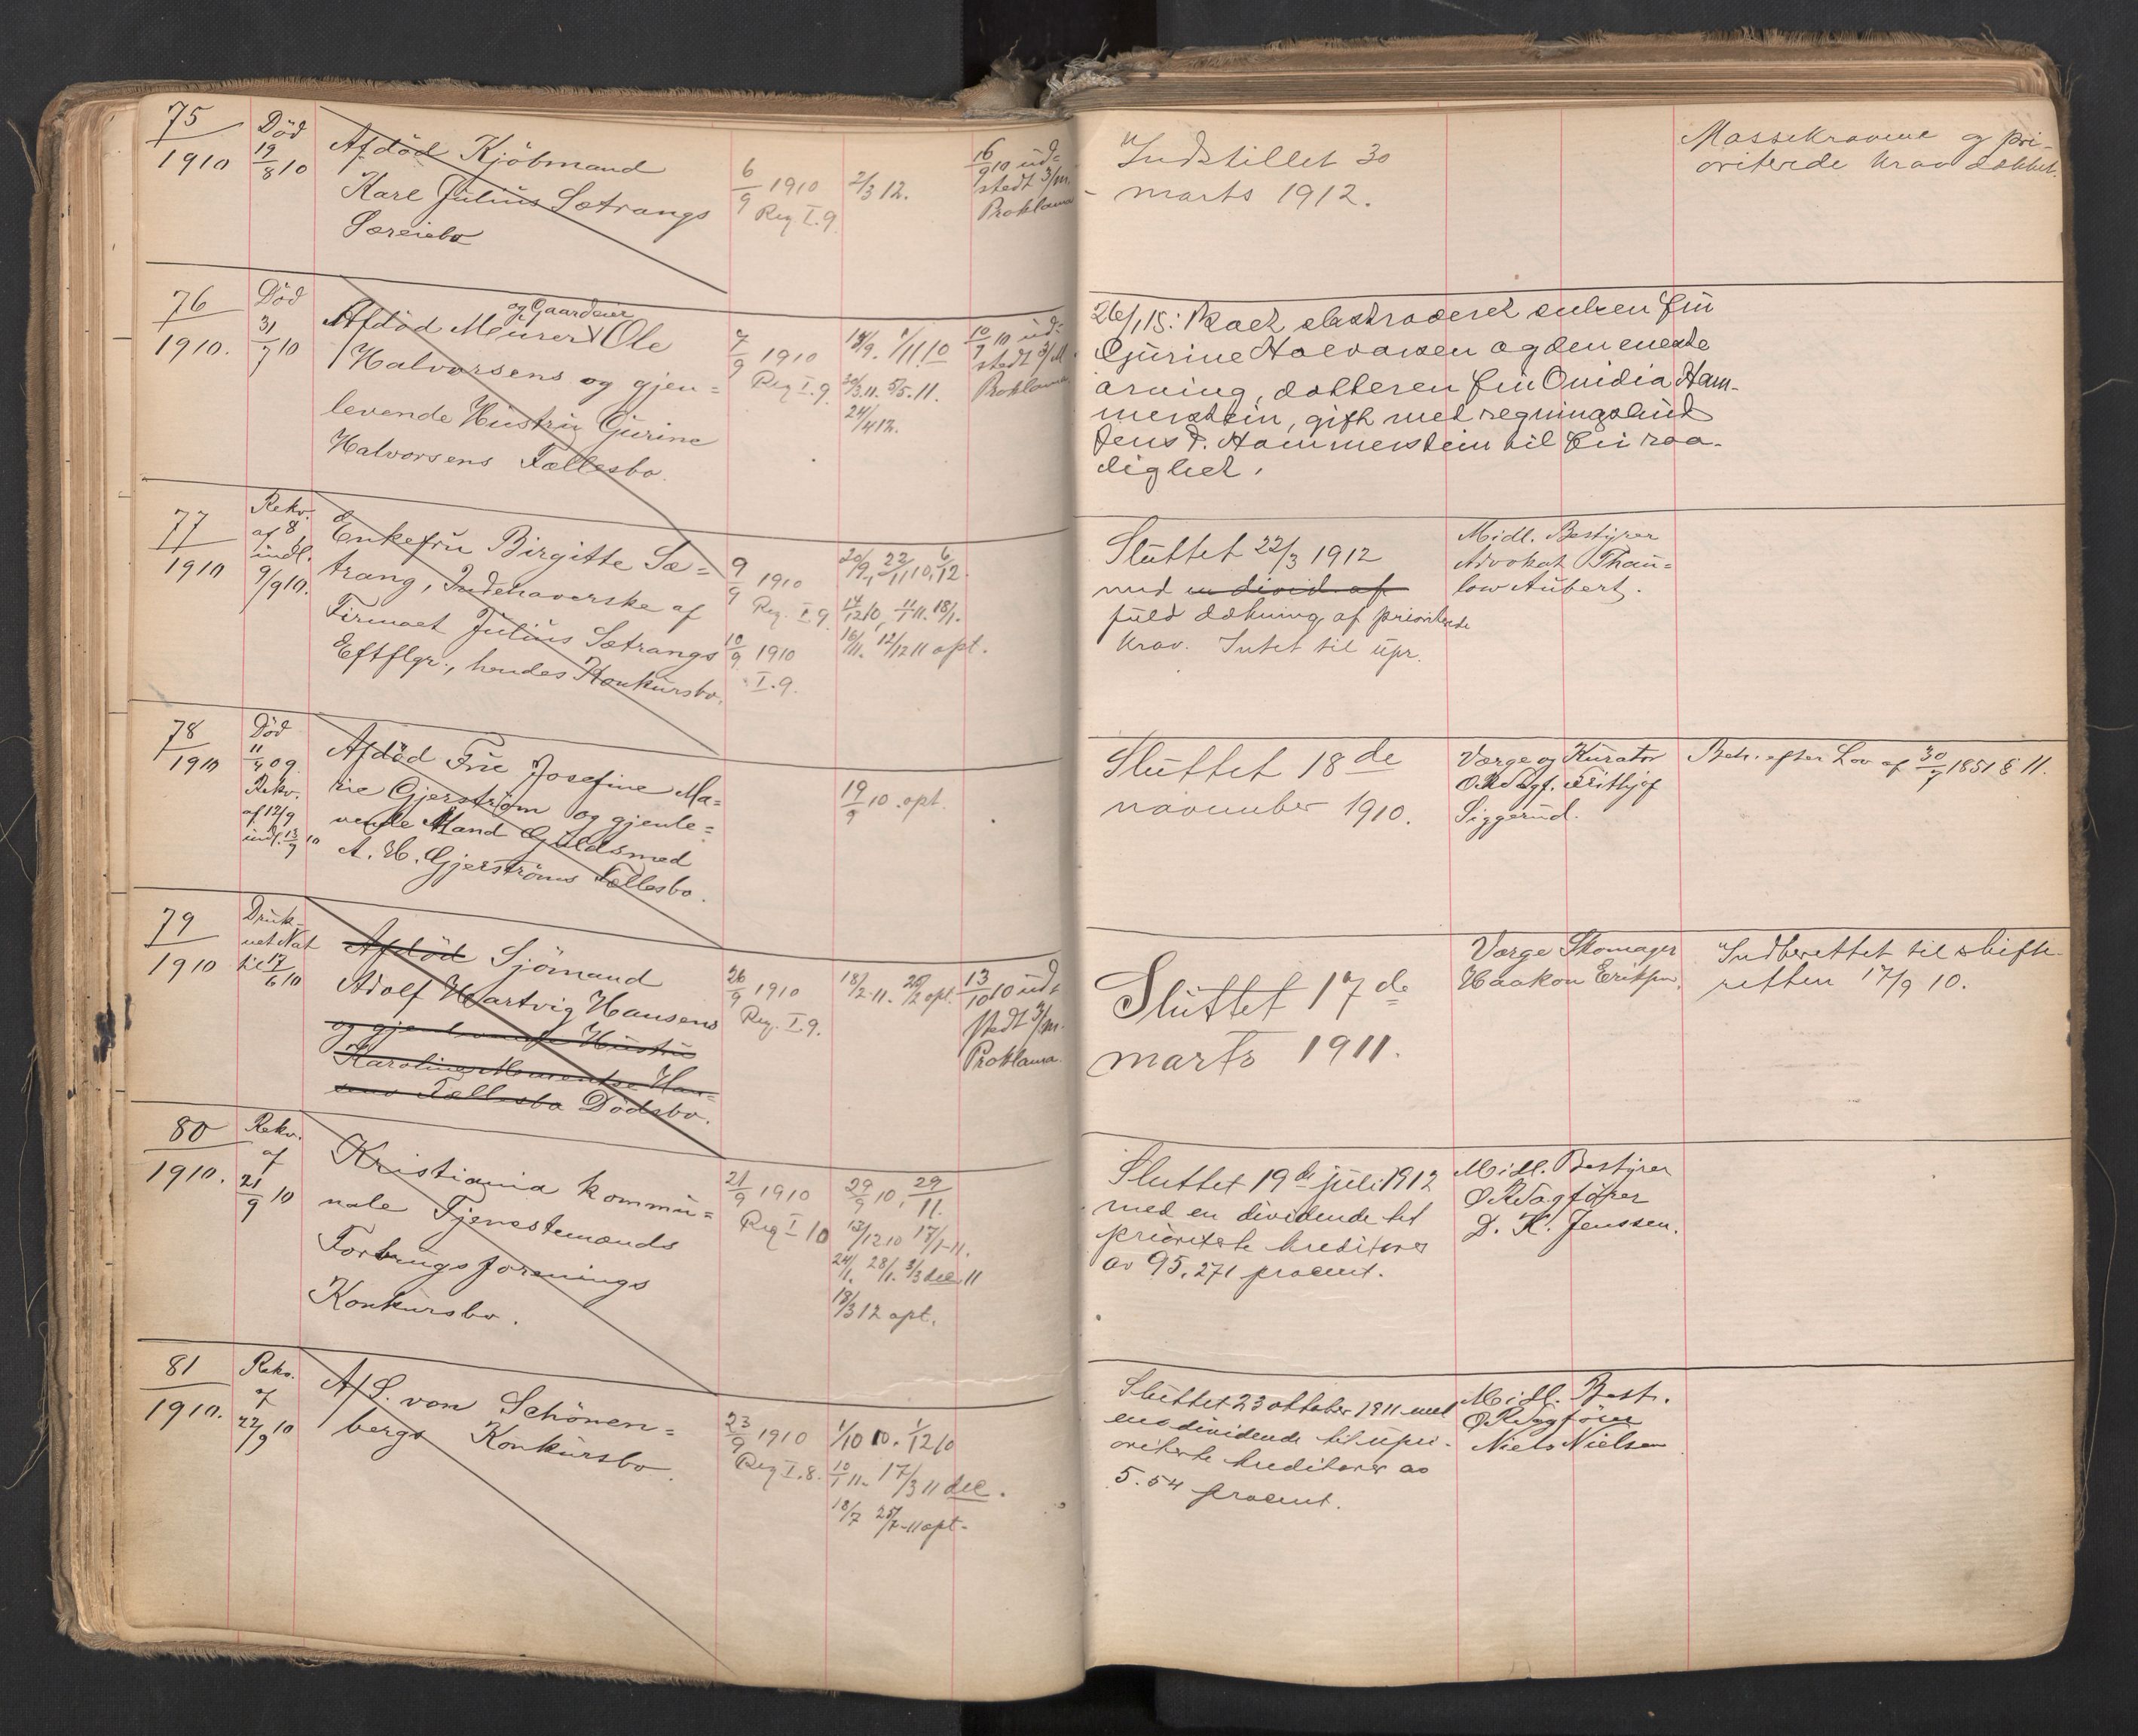 75
1910
Död
19/8 10
Afdöd Kjöbmand
Karl Julius Sætrangs
Særeiebo
6/9 1910
Reg I.9.
2/3 12.
16/9 10 ud=
stedt 3/m.
Proklama
Indstillet 30
marts 1912.
Massekravene og pri-
oriterede krav dækket.
76
1910.
Död
31/7 10
og Gaardeier
Afdöd Murer Ole
Halvorsens og gjen=
levende Hustru Gurine
Halvorsens Fællesbo.
7/9 1910
Reg I.9
1/11 10
20/3 11. 5/5. 11.
24/4 12.
10/9 10 ud=
stedt 3/M.
Proklama
26/1 15: Boet ekstraderet enken fru
Gurine Halvorsen og den eneste
arving, datteren fru Ovidia Ham-
merstein, gift med regningsbud
Jens P. Hammerstein til fri raa-
dighet.
77
1910
Rekv.
af 8
indl.
9/9 10.
Enkefru Birgitte Sæ=
trang, Indehaverske af
Firmaet Julius Sætrangs
Eftflgr., hendes Konkursbo.
9/9 1910
Reg. I.9
10/9 1910
I.9.
20/9, 22/11 10, 6/12.
14/12 10, 11/1 11. 18/1.
16/11. 12/12 11 opt.
Sluttet 22/3 1912
med en divid. af
fuld dækning af prioriterede
krav. Intet til upr.
Midl. Bestyrer
Advokat Thau=
low Aubert.
78
1910
Död
11/4 09
Rekv.
af 12/9
indl. 13/9 10
Afdöd Fru Josefine Ma=
rie Gjerström og gjenle=
vende Mand Guldsmed
A. H. Gjerströms Fællesbo.
19/9 10 opt.
Sluttet 18de
november 1910.
Værge og Kurator
O.R.Sagf. Frithjof
Siggerud.
Beh. efter Lov af 30/7 1851 § 11.
79
1910
Druk-
net Nat
til 17/6 10
Afdöd Sjömand
Adolf Hartvig Hansens
og gjenlevende Hustru
Karoline Han=
sens Fællesbo Dödsbo.
26/9 1910
Reg. I.9.
18/2 11. 28/2 opt.
13/10 10 ud-
stedt 3/m.
Proklama.
Sluttet 17de
marts 1911.
Værge Skomager
Haakon Eriksen.
Indberettet til skifte-
retten 17/9 10.
80
1910.
Rekv.
af
21/9 10
Kristiania kommu=
nale Tjenestemænds
Forbrugsforenings
Konkursbo.
21/9 1910
Reg I 10
29/9 10, 29/11.
13/12 10 17/1-11.
24/1. 28/1. 3/3 del 11
18/3 12 opt.
Sluttet 19de juli 1912
med en dividende til
prioriterte kreditorer
av 95,271 procent.
Midl. Bestyrer
O.R.Sagförer
D. K. Jenssen.
81
1910.
Rekv.
af
22/9 10
A/S. von Schönen=
bergs Konkursbo.
23/9 1910
Reg I.8.
1/10 10. 1/12 10
10/1 11. 17/3 11 del.
18/7 25/7-11 opt-
Sluttet 23 oktober 1911 med
en dividende til upri-
oriterte kreditorer av
5.54 procent.
Midl. Best.
O.R.Sagförer
Niels Nielsen